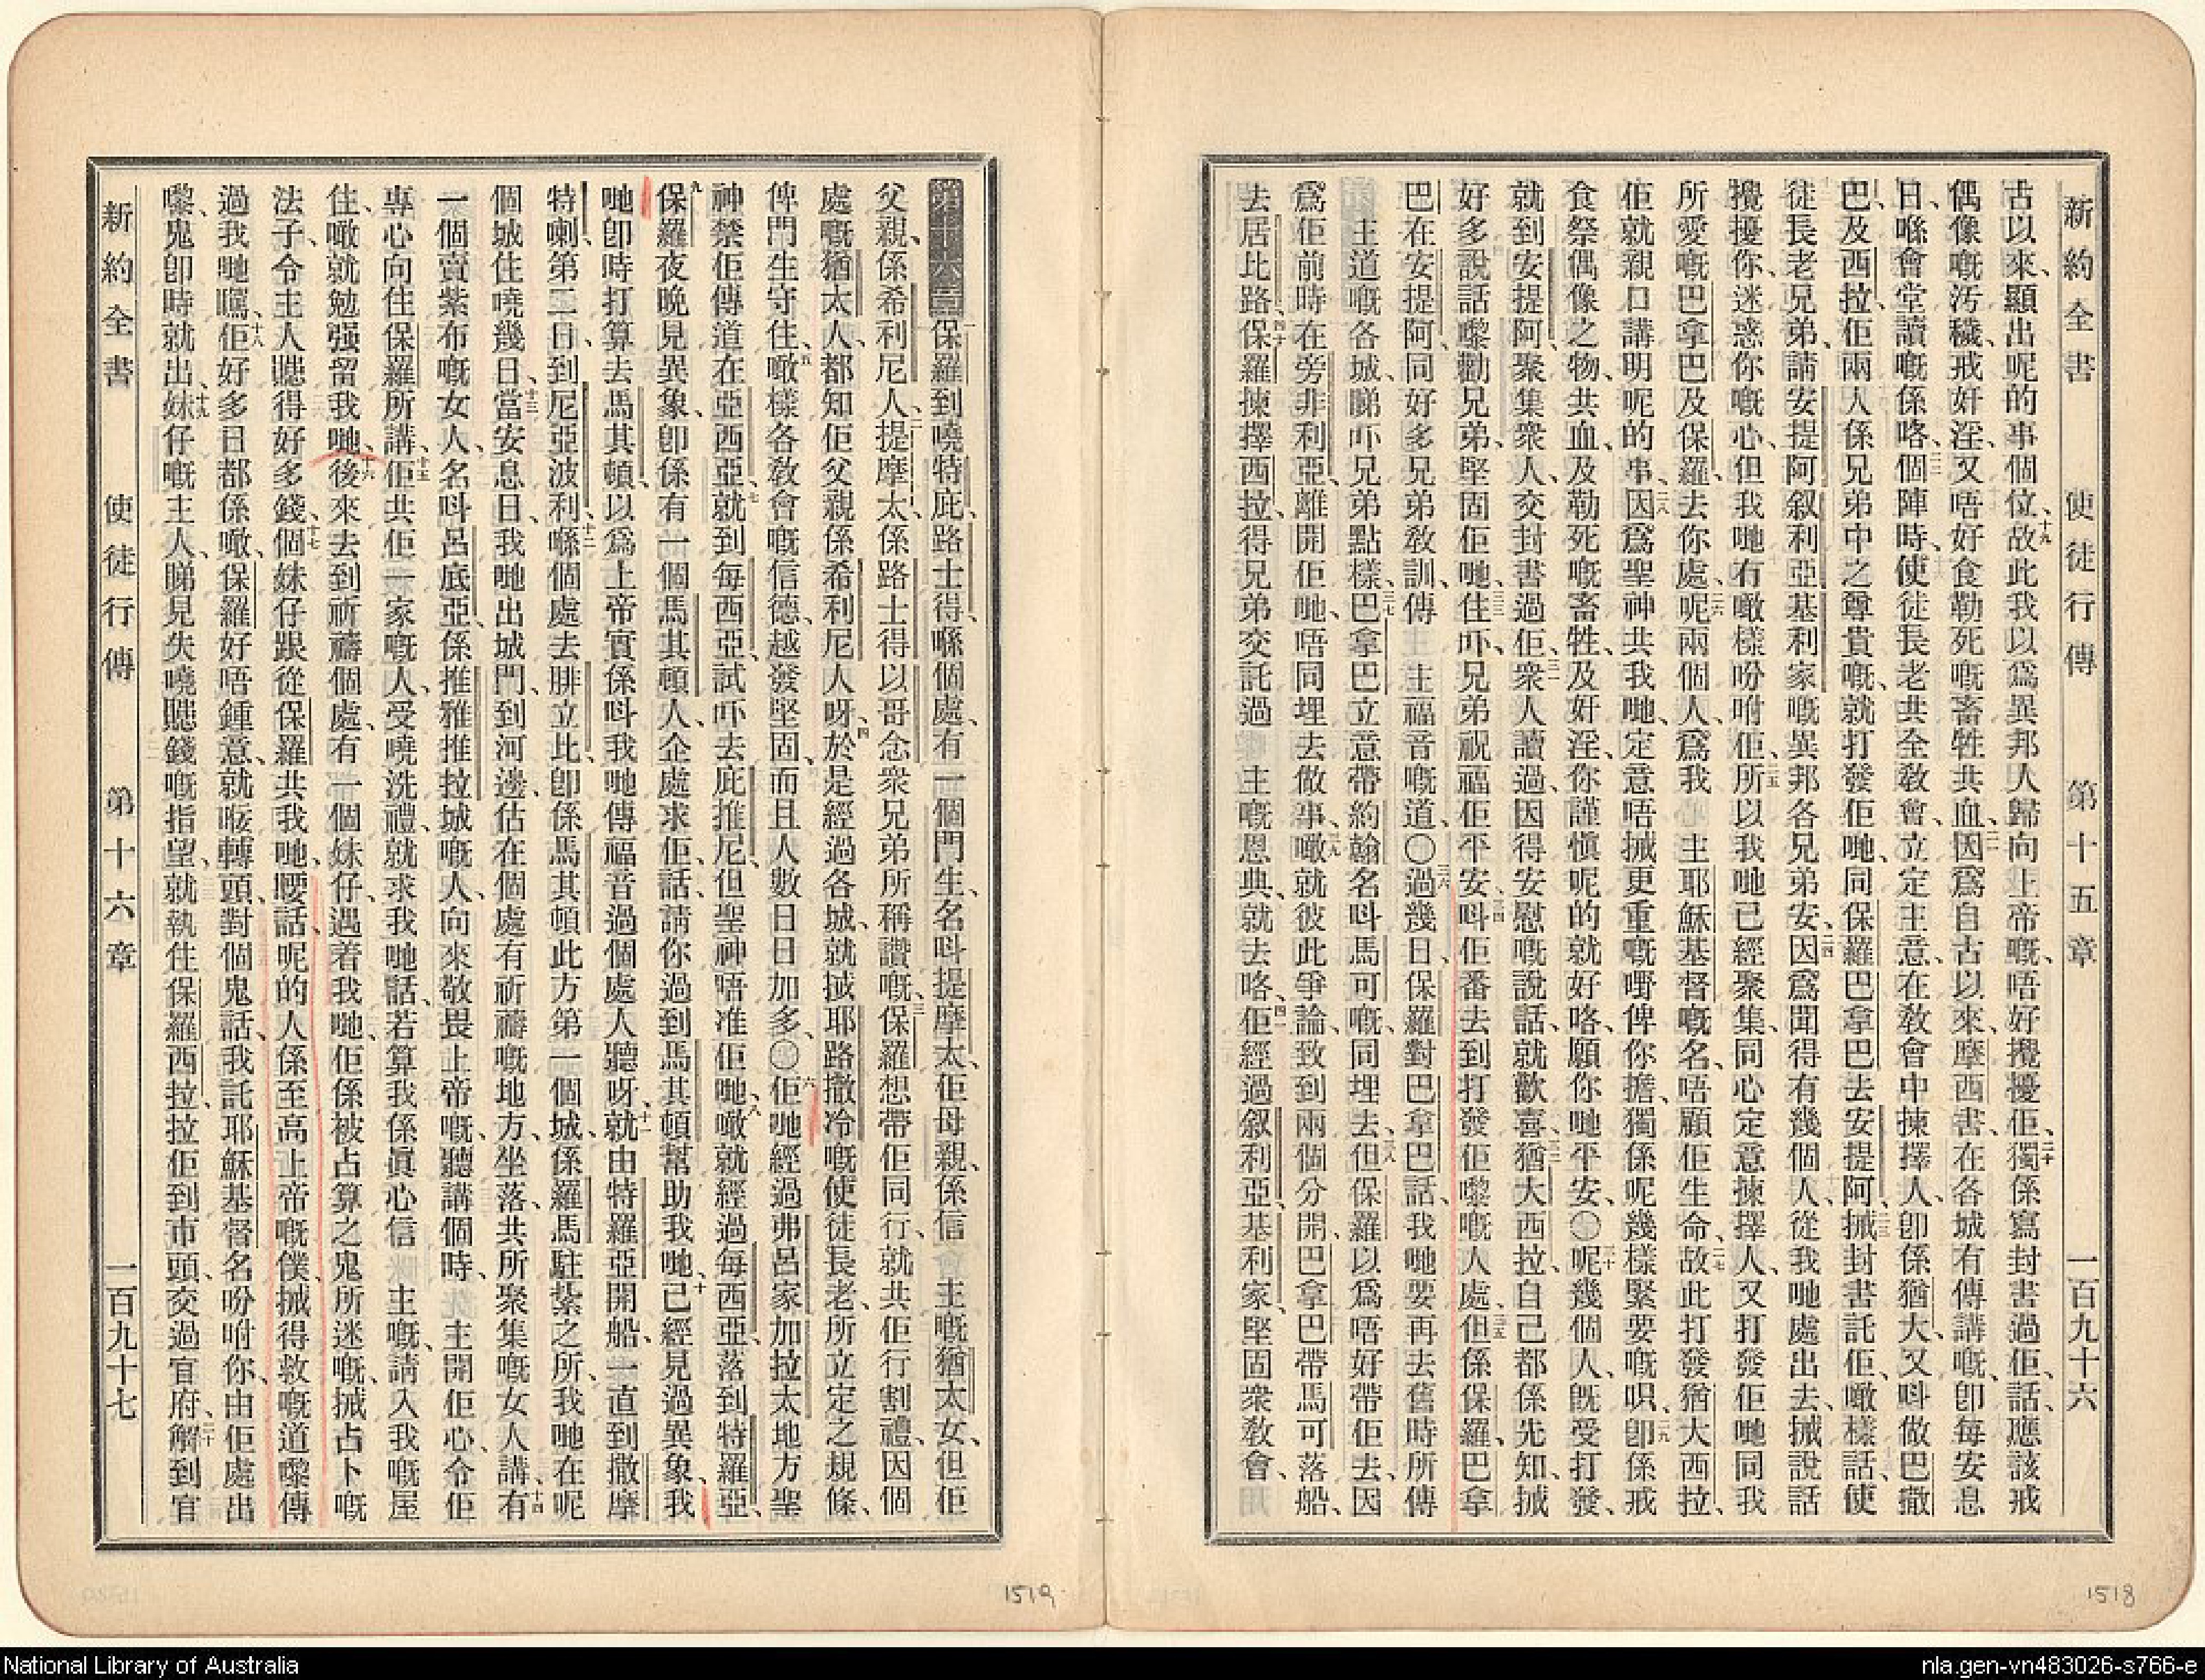 新約全書　使徒行傳　第十五章　一百九十六
古以來、顯出呢的事個位、十九故此我以爲異邦人歸向上帝嘅、唔好攪擾佢、二十獨係寫封書過佢、話、應該戒
偶像嘅汚穢、戒奸淫、又唔好食勒死嘅畜牲共血、二一因爲自古以來、摩西書、在各城有傳講嘅、卽每安息
日、喺會堂讀嘅係咯、二二個陣時、使徒長老共全敎會、立定主意、在敎會中揀擇人、卽係猶大、又呌做巴撒
巴、及西拉、佢兩人係兄弟中之尊貴嘅、就打發佢哋、同保羅巴拿巴去安提阿、二三搣封書託佢、噉樣話、使
徒長老兄弟、請安提阿叙利亞基利家嘅異邦各兄弟安、二四因爲聞得有幾個人、從我哋處出去、搣說話
攪擾你、迷惑你嘅心、但我哋有噉樣吩咐佢、二五所以我哋已經聚集、同心定意揀擇人、又打發佢哋同我
所愛嘅巴拿巴及保羅、去你處、二六呢兩個人、爲我　主耶穌基督嘅名、唔顧佢生命、二七故此打發猶大西拉、
佢就親口講明呢的事、二八因爲聖神共我哋、定意唔搣更重嘅嘢俾你擔、獨係呢幾樣緊要嘅呮、二九卽係戒
食祭偶像之物、共血、及勒死嘅畜牲、及奸淫、你謹愼呢的就好咯、願你哋平安、〇三十呢幾個人、旣受打發、
就到安提阿、聚集衆人、交封書過佢、三一衆人讀過、因得安慰嘅說話、就歡喜、三二猶大西拉、自己都係先知、搣
好多說話嚟勸兄弟、堅固佢哋、三三住吓、兄弟祝福佢平安、三四呌佢番去到打發佢嚟嘅人處、三五但係保羅、巴拿
巴在安提阿、同好多兄弟敎訓、傳　主福音嘅道、〇三六過幾日、保羅對巴拿巴話、我哋要再去舊時所傳
　主道嘅各城、睇吓兄弟點樣、三七巴拿巴立意帶約翰名呌馬可嘅、同埋去、三八但保羅以爲唔好帶佢去、因
爲佢前時在旁非利亞離開佢哋、唔同埋去做事、三九噉就彼此爭論、致到兩個分開、巴拿巴帶馬可落船、
去居比路、四十保羅揀擇西拉、得兄弟交託過　主嘅恩典、就去咯、四一佢經過叙利亞、基利家、堅固衆敎會、
1518
第十六章　一保羅到嘵特庇、路士得、喺個處、有一個門生、名呌提摩太、佢母親、係信　主嘅猶太女、但佢
父親、係希利尼人、二提摩太、係路士得以哥念衆兄弟所稱讚嘅、三保羅想帶佢同行、就共佢行割禮、因個
處嘅猶太人、都知佢父親係希利尼人呀、四於是經過各城、就搣耶路撒冷嘅使徒長老、所立定之規條、
俾門生守住、五噉樣各敎會嘅信德、越發堅固、而且人數日日加多、〇六佢哋經過弗呂家加拉太地方、聖
神禁佢傳道在亞西亞、七就到每西亞、試吓去庇推尼、但聖神唔准佢哋、八噉就經過每西亞、落到特羅亞、
九保羅夜晚見異象、卽係有一個馬其頓人、企處求佢、話、請你過到馬其頓幫助我哋、十已經見過異象、我
哋卽時打算去馬其頓、以爲上帝實係呌我哋傳福音過個處人聽呀、十一就由特羅亞開船、一直到撒摩
特喇、第二日、到尼亞波利、十二喺個處去腓立比、卽係馬其頓此方第一個城、係羅馬駐紮之所、我哋在呢
個城住嘵幾日、十三當安息日、我哋出城門、到河邊、估在個處有祈禱嘅地方、坐落共所聚集嘅女人講、十四有
一個賣紫布嘅女人、名呌呂底亞、係推雅推拉城嘅人、向來敬畏上帝嘅、聽講個時、　主開佢心、令佢
專心向住保羅所講、十五佢共佢一家嘅人、受嘵洗禮、就求我哋話、若算我係眞心信　主嘅、請入我嘅屋
住、噉就勉强留我哋、十六後來去到祈禱個處、有一個妹仔、遇着我哋、佢係被占算之鬼所迷嘅、搣占卜嘅
法子、令主人賺得好多錢、十七個妹仔跟從保羅共我哋、嗌話、呢的人係至高上帝嘅僕、搣得救嘅道嚟傳
過我哋聽、十八佢好多日都係噉、保羅好唔鍾意、就咹轉頭、對個鬼話、我託耶穌基督名吩咐你、由佢處出
嚟、鬼卽時就出、十九妹仔嘅主人、睇見失嘵賺錢嘅指望、就執住保羅西拉、拉佢到市頭、交過官府、二十解到官
新約全書　使徒行傳　第十六章　一百九十七
1519
National Library of Australia
nla.gen-vn483026-s766-e